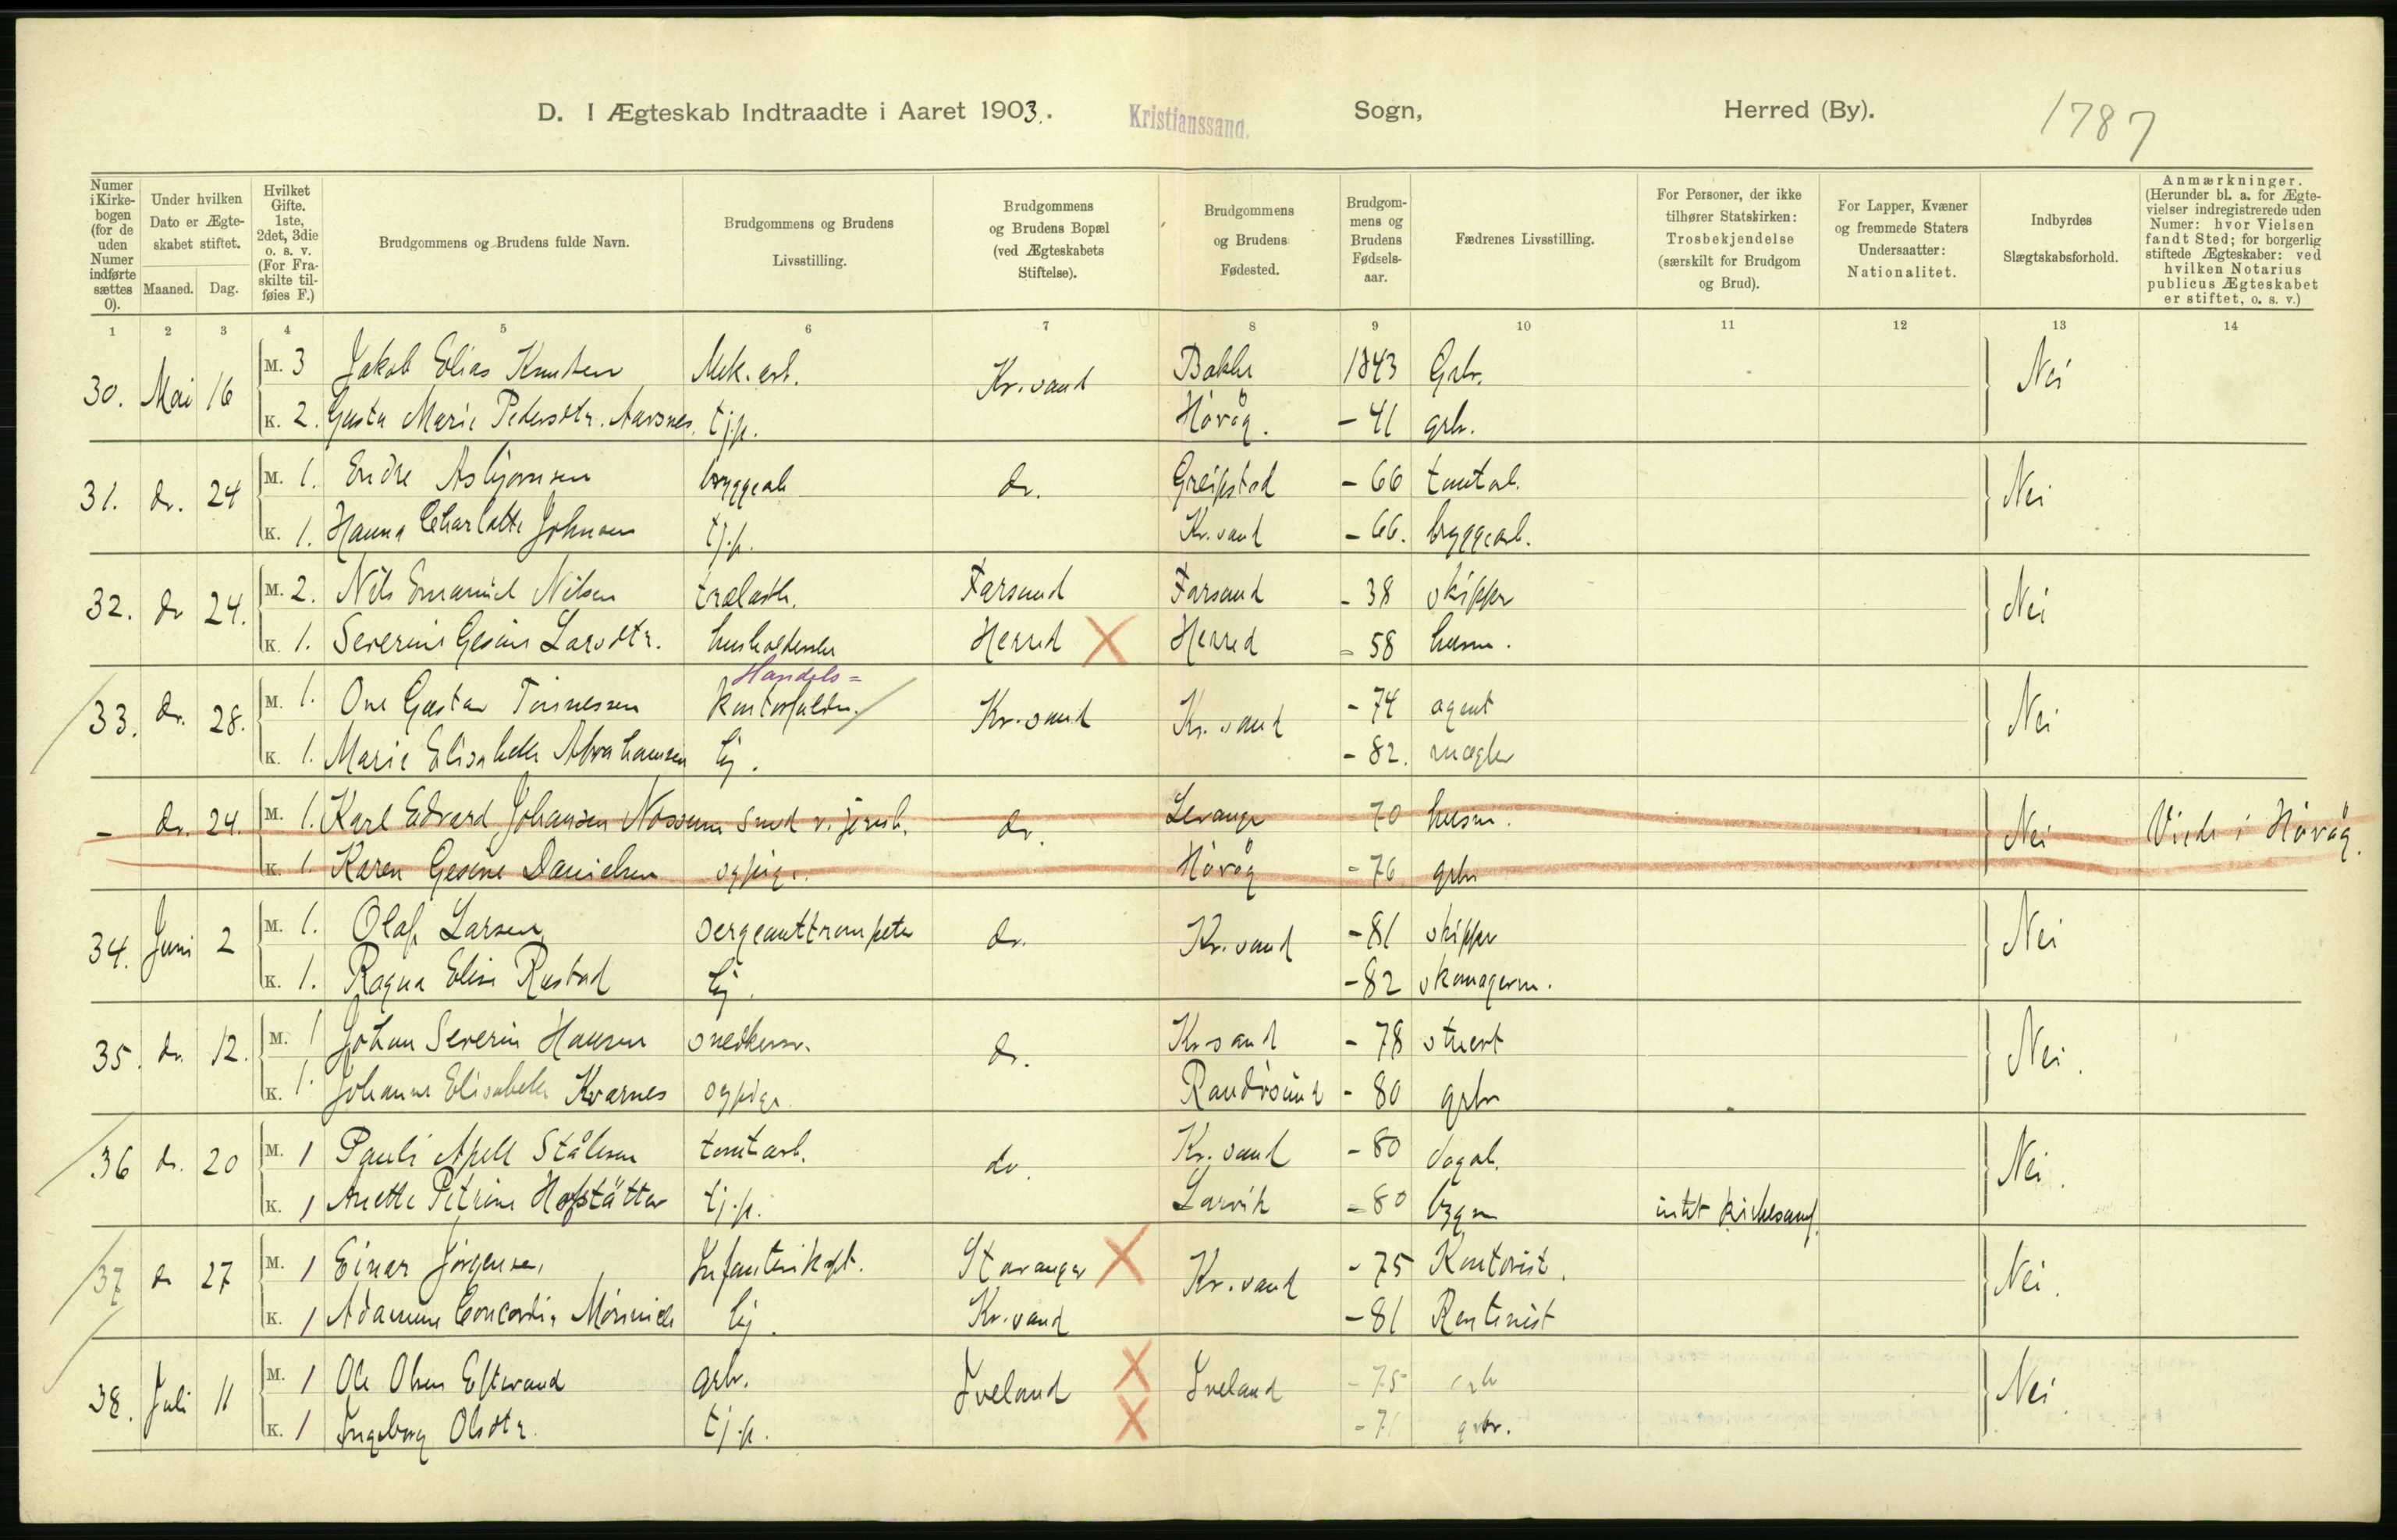 D. I Ægteskab Indtraadte i Aaret 1903. Kristianssand. Sogn, Herred (By). 1787
Numer i Kirkebogen (for de uden Numer indførte sættes 0). Under hvilken Dato er Ægteskabet stiftet. Maaned. Dag. Hvilket Gifte. 1ste, 2det, 3die o. s. v. (For Fraskilte tilføies F.) Brudgommens og Brudens fulde Navn. Brudgommens og Brudens Livsstilling. Brudgommens og Brudens Bopæl (ved Ægteskabets Stiftelse). Brudgommens og Brudens Fødested. Brudgommens og Brudens Fødselsaar. Fædrenes Livsstilling. For Personer, der ikke tilhører Statskirken: Trosbekjendelse (særskilt for Brudgom og Brud). For Lapper, Kvæner og fremmede Staters Undersaatter: Nationalitet. Indbyrdes Slægtskabsforhold. Anmærkninger. (Herunder bl. a. for Ægtevielser indregistrerede uden Numer: hvor Vielsen fandt Sted; for borgerlig stiftede Ægteskaber: ved hvilken Notarius publicus Ægteskabet er stiftet, o. s. v.)
1 2 3 4 5 6 7 8 9 10 11 12 13 14
30. Mai 16 M. 3 Jakob Elias Knudsen Mek. arb. Kr.sand Bakke 1843 Gbr. Nei
K. 2. Gusta Marie Pedersdtr. Aarsnes. tj.p. Høvåg. - 41 gbr.
31. do. 24 M. 1. Endre Asbjørnsen bryggearb do. Greipstad - 66 tomtarb. Nei
K. 1. Hanna Charlotte Johnsen tj.p. Kr.sand - 66. bryggearb.
32. do 24. M. 2. Nils Emanuel Nilsen trælasth. Farsund Farsund - 38 skipper Nei
K. 1. Severine Gesine Larsdtr. husholderske Herred Herred - 58 husm.
Handels=
33. do. 28. M. 1. One Gustav Tønnessen kontorfuldm. Kr.sand Kr.sand - 74 agent Nei
K. 1. Marie Elisabeth Abrahamsen hj. - 82. mægler
- do. 24. M. 1. Karl Edvard Johansen Nossum Smed v. jernb. do. Levanger - 70 husm. Nei Viede i Høvåg.
K. 1. Karen Gesine Danielsen sypige. Høvåg - 76 gbr
34. Juni 2 M. 1. Olaf Larsen sergeanttrompeter do. Kr.sand - 81 skipper Nei
K. 1. Ragna Elise Rustad hj. - 82 skomagerm.
35. do. 12. M. 1 Johan Severin Hansen snedkersv. do. Kr.sand - 78 stuert Nei.
K. 1. Johanne Elisabeth Kvarnes sypige. Randøsund - 80 gbr
36 do. 20 M. 1 Pauli Apell Stålesen tomtarb. do. Kr.sand - 80 dagarb. Nei.
K. 1 Anette Petrine Hofstätter tj.p. Larvik - 80 bygm intet kirkesamf.
37 do 27 M. 1 Einar Jörgensen, Infanterikapt. Stavanger Kr.sand - 75 Kontorist. Nei.
K. 1 Adamine Concordia Mørinich hj. Kr.sand - 81 Rentenist
38. Juli 11 M. 1 Ole Olsen Eftevand gbr. Iveland Iveland - 75 gbr Nei.
K. 1 Ingeborg Olsdtr. tj.p. - 71 gbr.